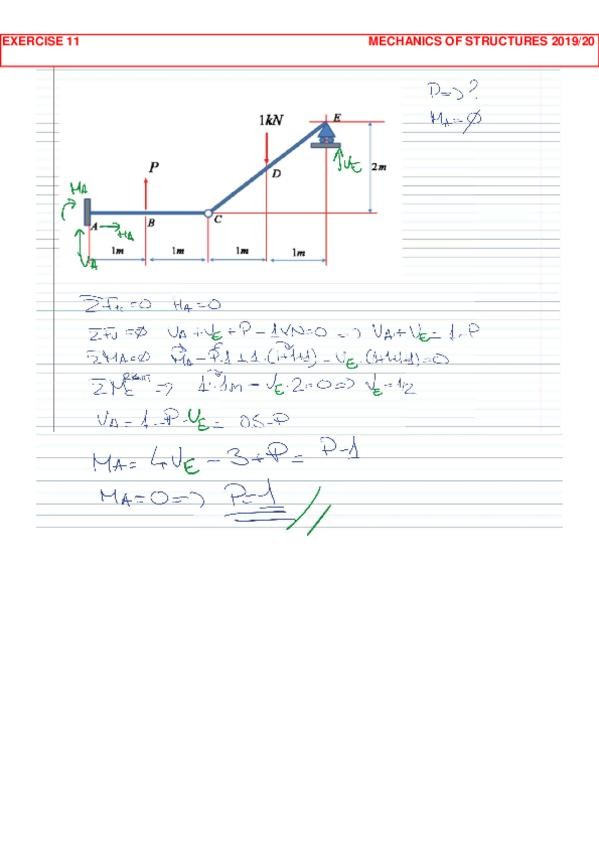 EXERCISE 11 MECHANICS OF STRUCTURES 2019/20
P=>?
MA=∅
1kN E
VE
P D 2m
MA
A HA B C
VA 1m 1m 1m 1m
ΣFH=0 HA=0
ΣFV=∅ VA+VE+P-1KN=0 => VA+VE=1-P
ΣMA=∅ MA-P·1+1·(1+1+1)-VE·(1+1+1+1)=0
ΣMC RIGHT => 1·1m-VE·2=0=> VE=1/2
VA=1-P-VE= 0.5-P
MA= 4VE-3+P= P-1
MA=0=> P=1